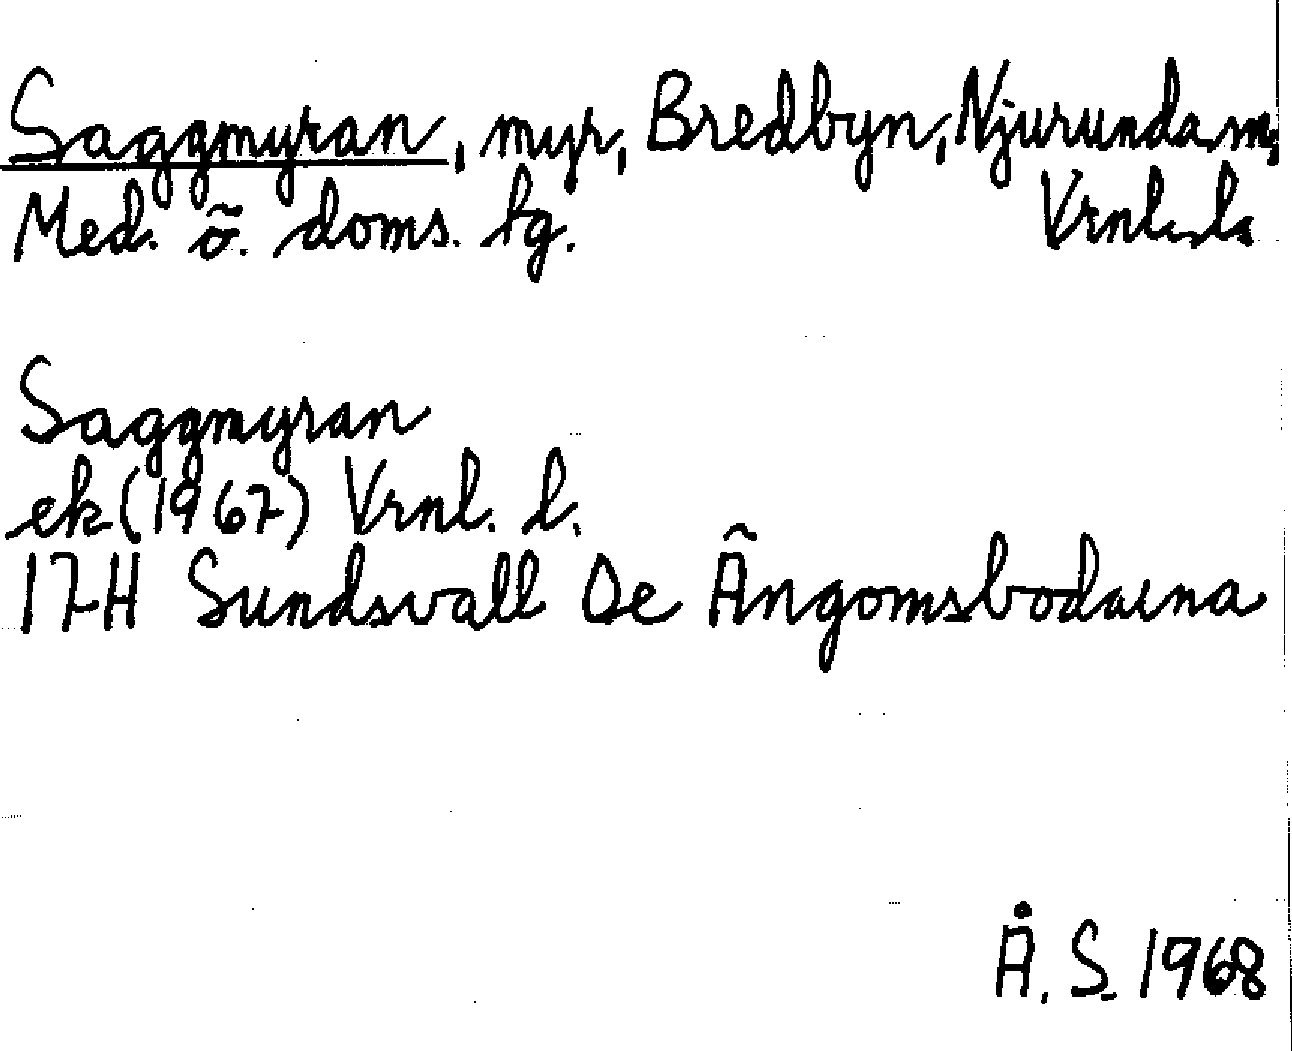 Saggmyran, myr, Bredbyn, Njurunda sn,
Med. ö. doms. lg. Vrnl. la
Saggmyran
ek (1967) Vrnl. l.
17H Sundsvall De Ängomsbodarna
Å. S. 1968